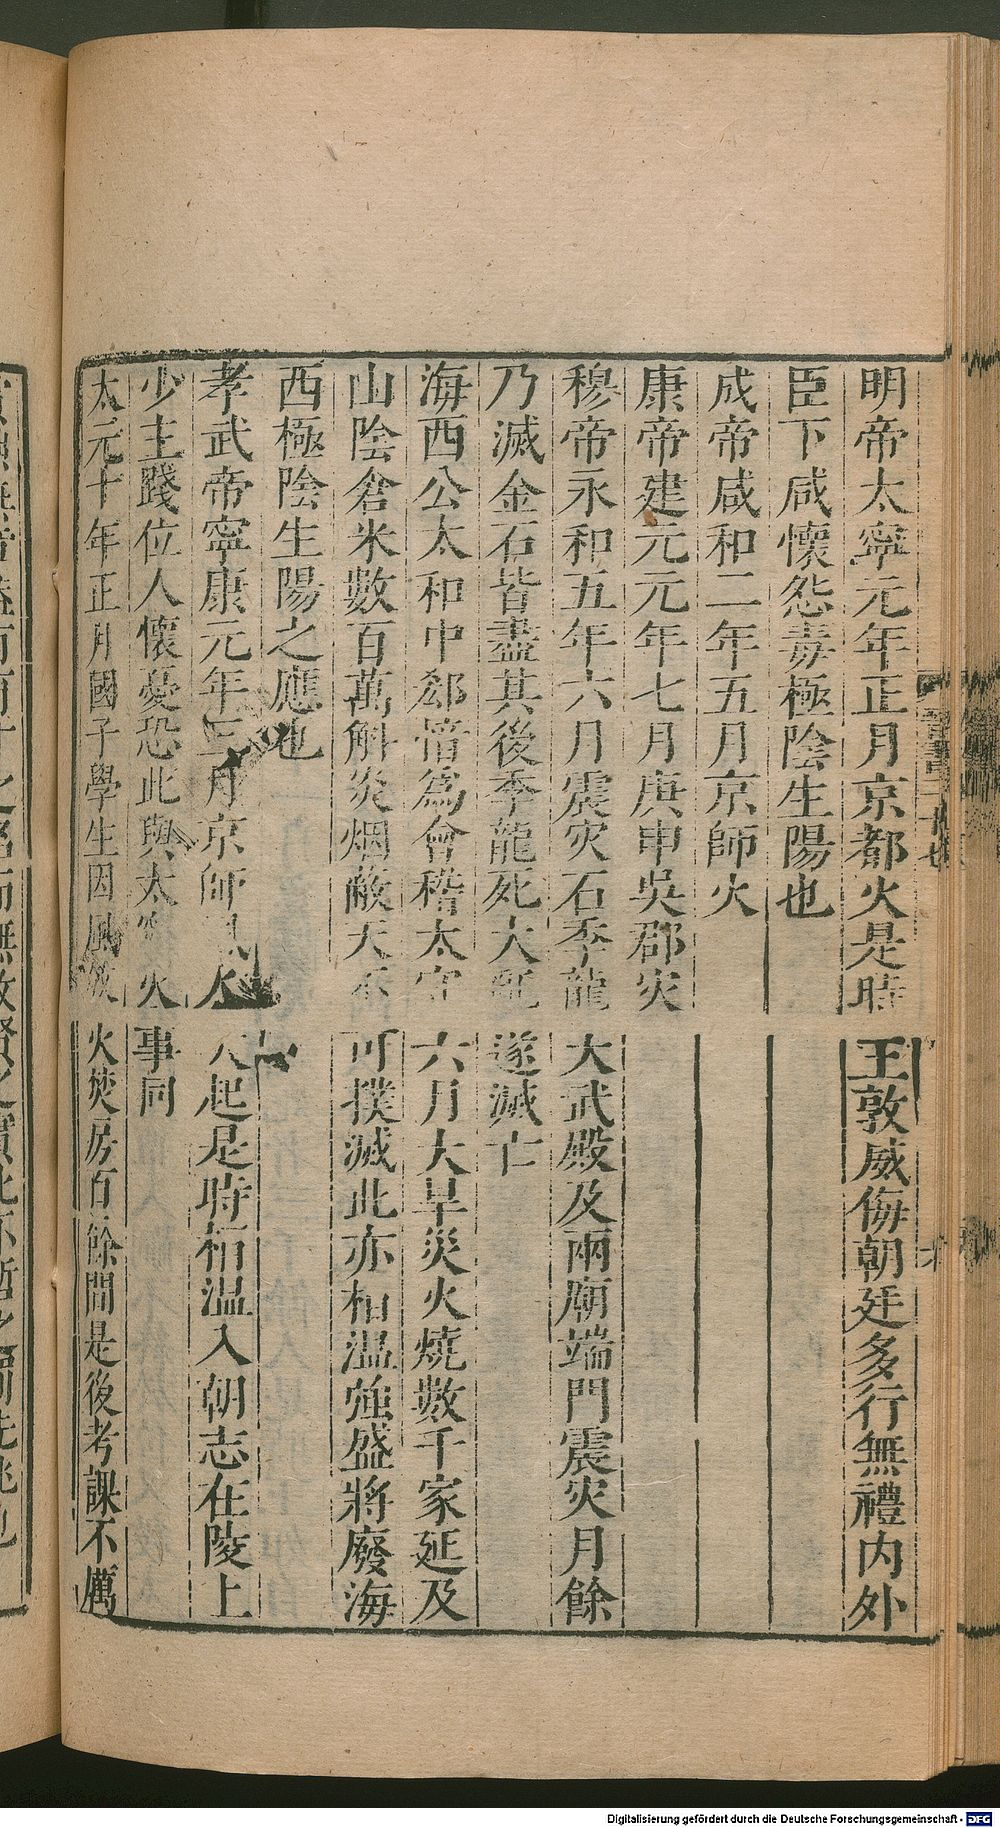 明帝太寧元年正月京都火是時王敦威侮朝廷多行無禮内外
臣下咸懷怨毒極陰生陽也
成帝咸和二年五月京師火
康帝建元元年七月庚申吳郡災
穆帝永和五年六月震灾石季龍大武殿及兩廟端門震灾月餘
乃滅金石皆盡其後季龍死大亂遂滅亡
海西公太和中郄愔為會稽太守六月大旱災火燒數千家延及
山陰倉米數百萬斛炎烟蔽天不可撲滅此亦桓温強盛將廢海
西極陰生陽之應也
孝武帝寧康元年三月京師風火大起是時桓温入朝志在陵上
少主踐位人懷憂恐此與太寧火事同
太元十年正月國子學生因風放火焚房百餘間是後考課不厲
Digitalisierung gefördert durch die Deutsche Forschungsgemeinschaft - DFG